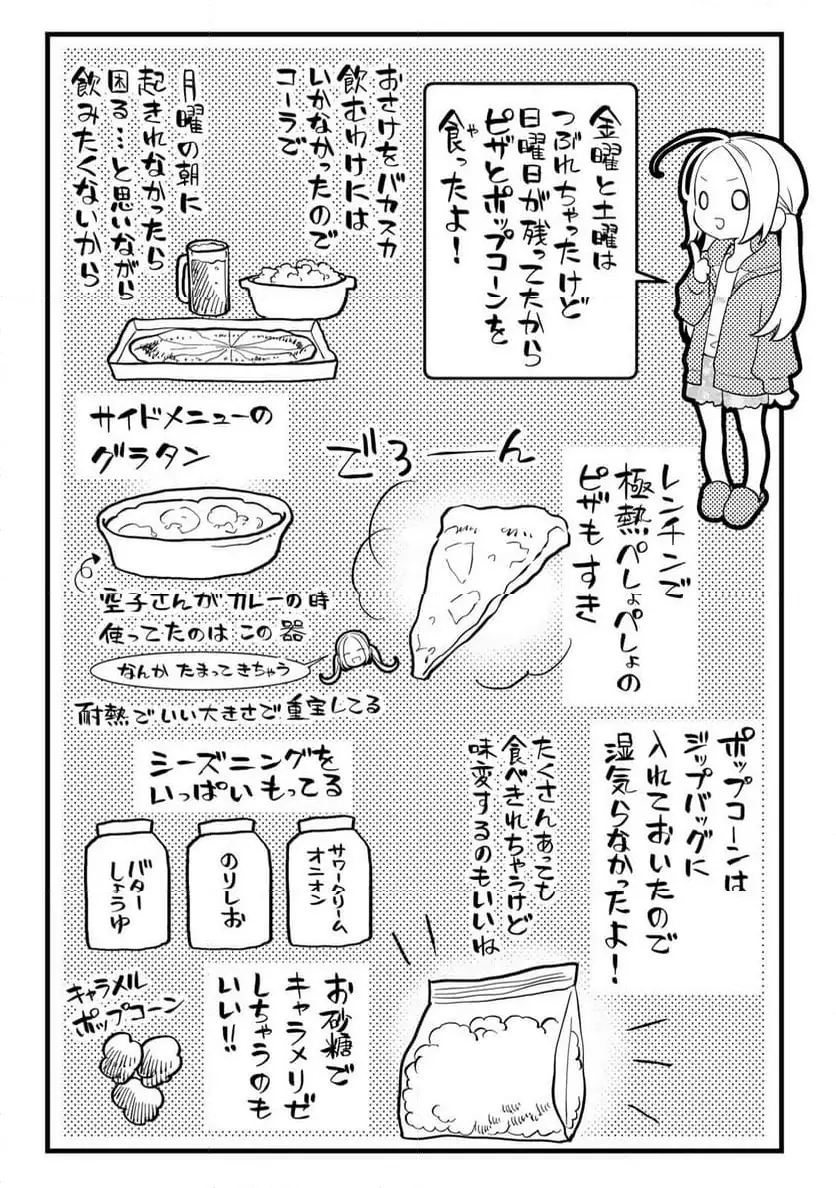 金曜と土曜は
つぶれちゃったけど
日曜日が残ってたから
ピザとポップコーンを
食ったよ！
や
おさけをバカスカ
飲むわけには
いかなかったので
コーラで
月曜の朝に
起きれなかったら
困る…と思いながら
飲みたくないから
レンチンで
極熱ぺしょぺしょの
ピザもすき
でろーん
サイドメニューの
グラタン
空子さんがカレーの時
使ってたのはこの器
なんかたまってきちゃう
耐熱でいい大きさで重宝してる
ポップコーンは
ジップバッグに
入れておいたので
湿気らなかったよ！
たくさんあっても
食べきれちゃうけど
味変するのもいいね
シーズニングを
いっぱいもってる
サワークリーム
オニオン
のりしお
バター
しょうゆ
お砂糖で
キャラメリゼ
しちゃうのも
いい!!
キャラメル
ポップコーン